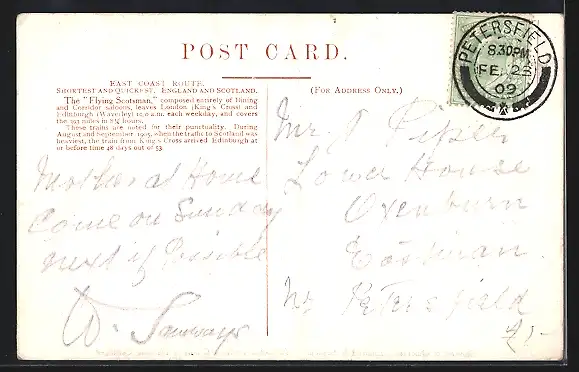 POST CARD.
EAST COAST ROUTE.
SHORTEST AND QUICKEST. ENGLAND AND SCOTLAND.
The "Flying Scotsman," composed entirely of Dining
and Corridor saloons, leaves London (King's Cross) and
Edinburgh (Waverley) 10.0 a.m. each weekday, and covers
the 393 miles in 8¼ hours.
These trains are noted for their punctuality. During
August and September, 1905, when the traffic to Scotland was
heaviest, the train from King's Cross arrived Edinburgh at
or before time 48 days out of 53.
Mother at Home
Come on Sunday
next if Possible
W.
(FOR ADDRESS ONLY.)
PETERSFIELD
8.30PM
FE 23
09
Mr Piper
Lower House
Oxenburn
Eastman.
Nr Petersfield